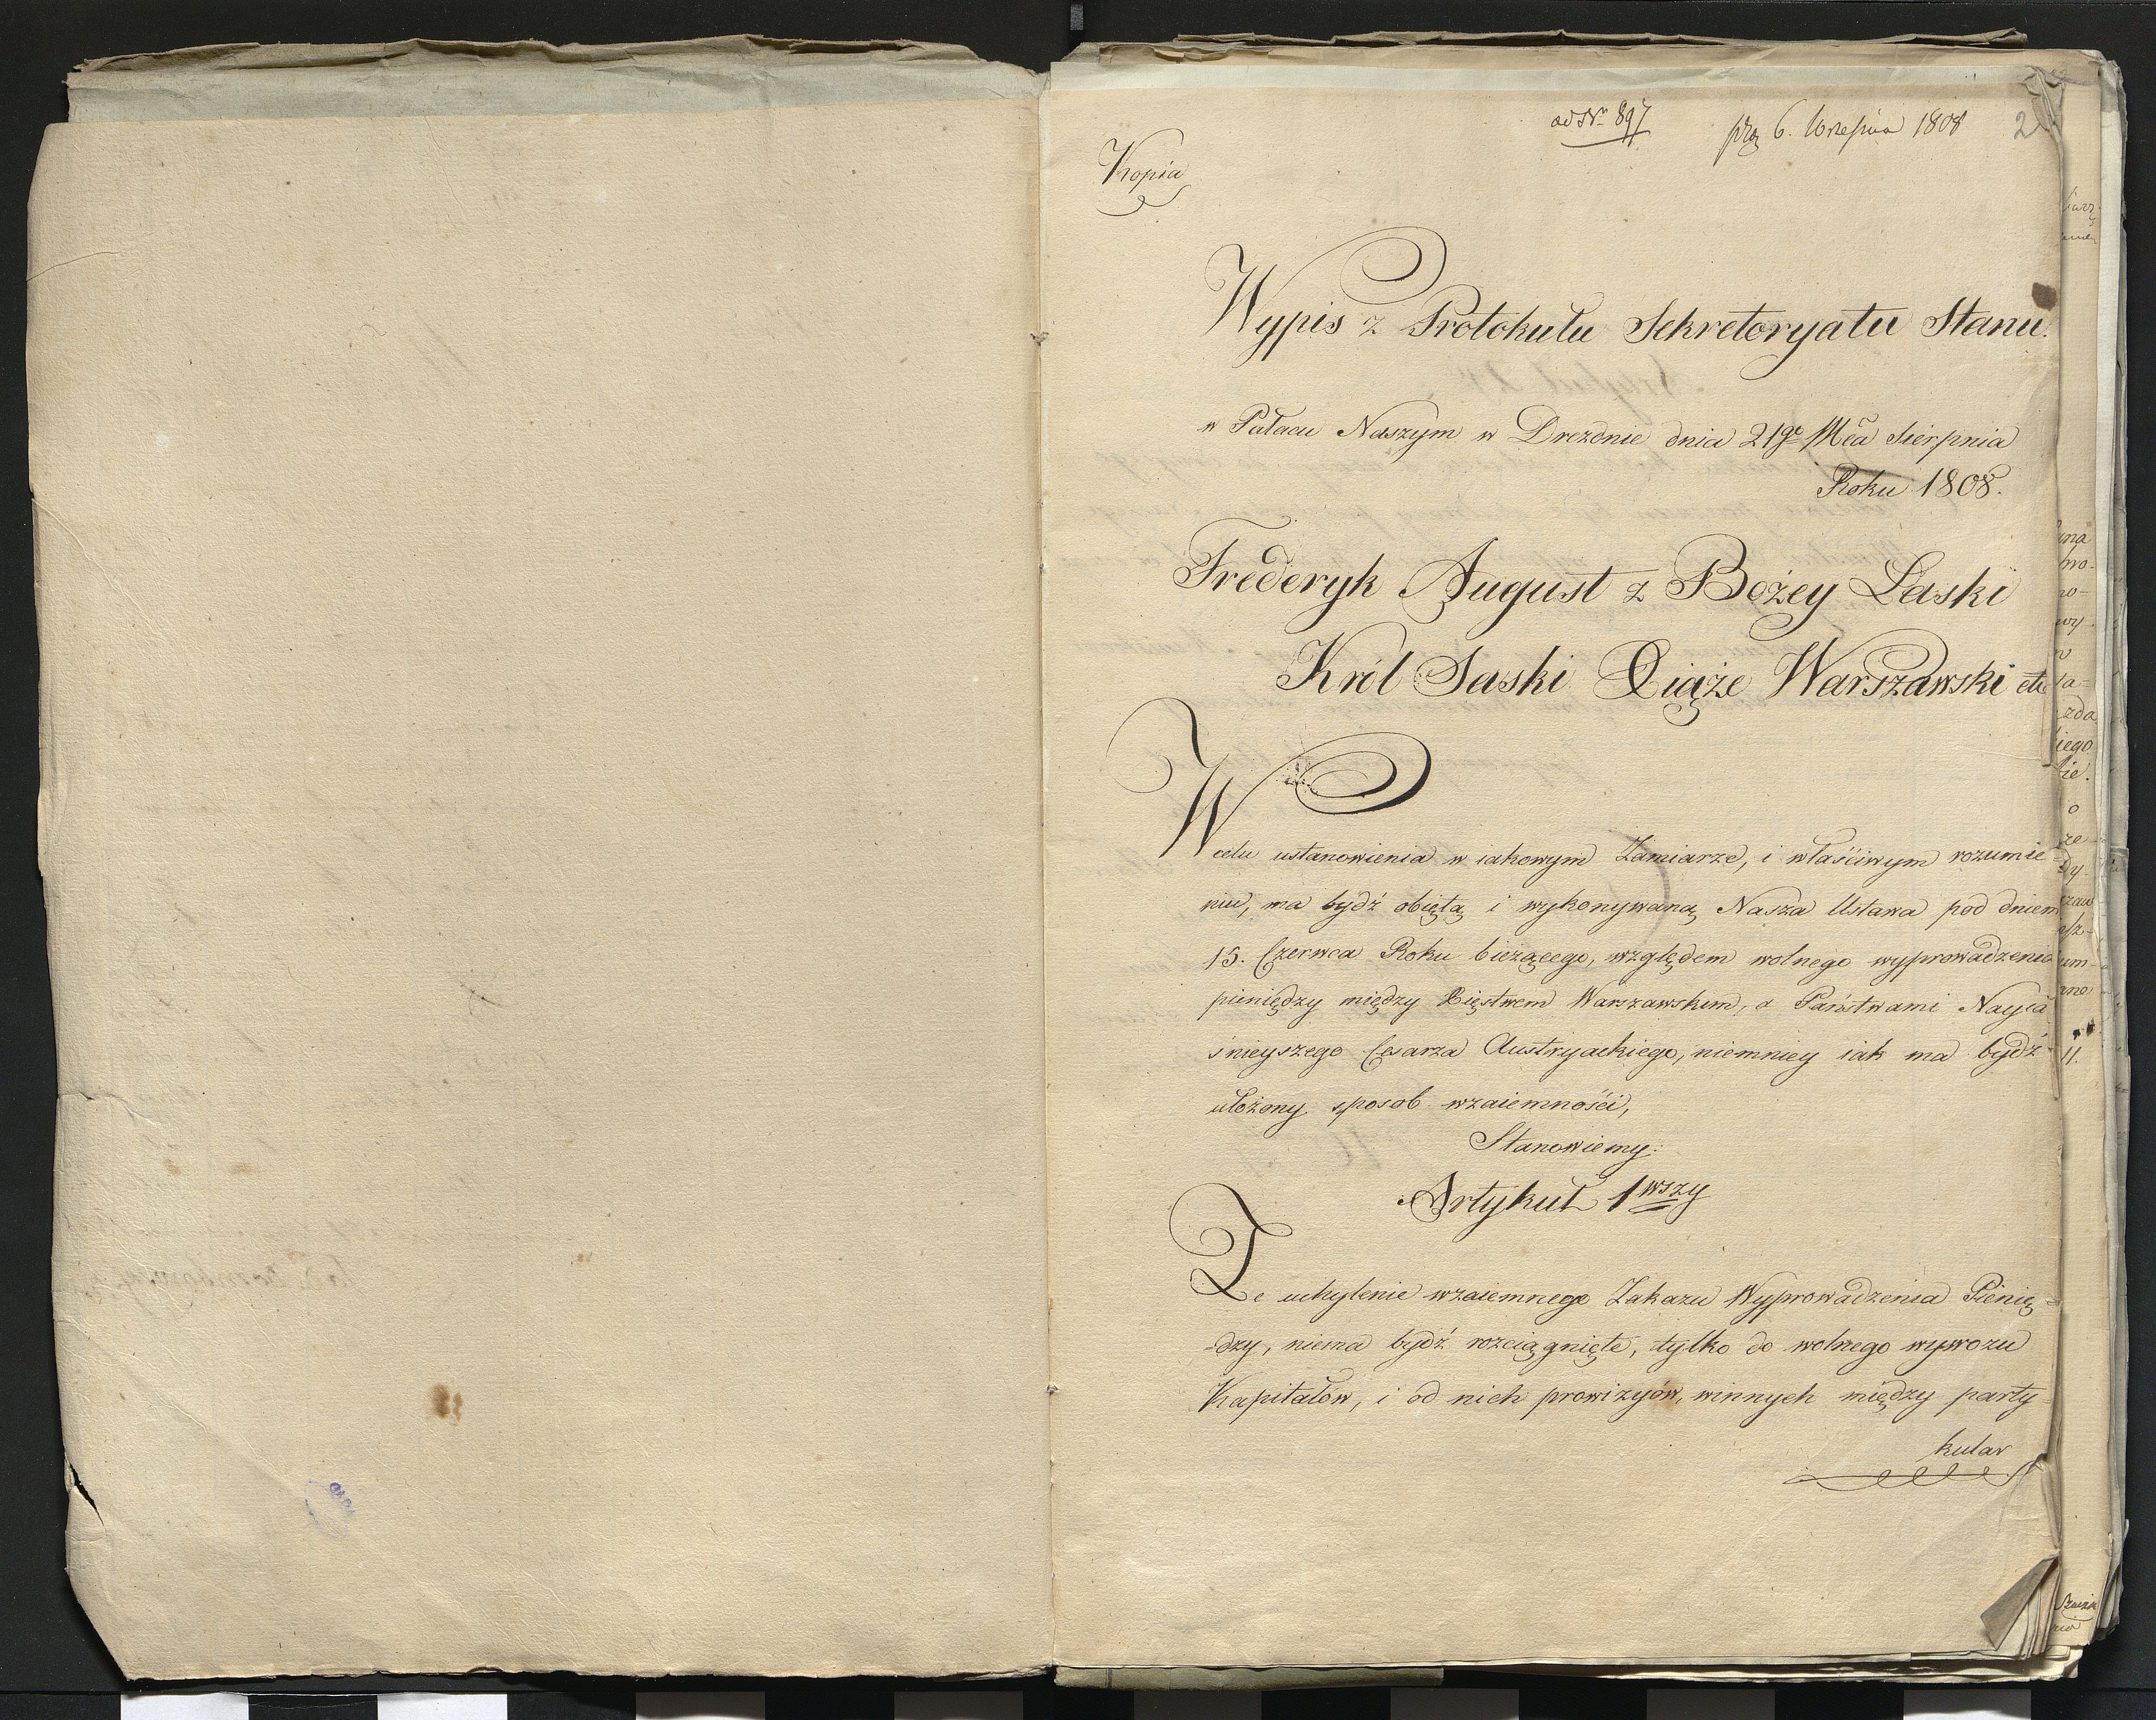 ad Nr 897
prz 6. Września 1808
2
Kopia
Wypis z Protokułu Sekretoryatu Stanu.
w Pałacu Naszym w Dreźdnie dnia 21go Mca Sierpnia
Roku 1808.
Frederyk August z Bożey Łaski
Król Saski Xiąże Warszawski etc
W celu ustanowienia w iakowym Zamiarze, i właściwym rozumie
niu, ma bydź obiętą i wykonywaną Nasza Ustawa pod dniem
15. Czerwca Roku bieżącego, względem wolnego wyprowadzenia
pieniędzy między Xięstwem Warszawskim, a Państwami Nayia
śnieyszego Cesarza Austryackiego, niemniey iak ma bydź
ułożony sposob wzaiemności,
Stanowiemy:
Artykuł 1wszy
Że uchylenie wzaiemnego Zakazu Wyprowadzenia Pienię-
-dzy, niema bydź rozciągnięte, tylko do wolnego wywozu
Kapitałów, i od nich prowizyów, winnych między party-
kular